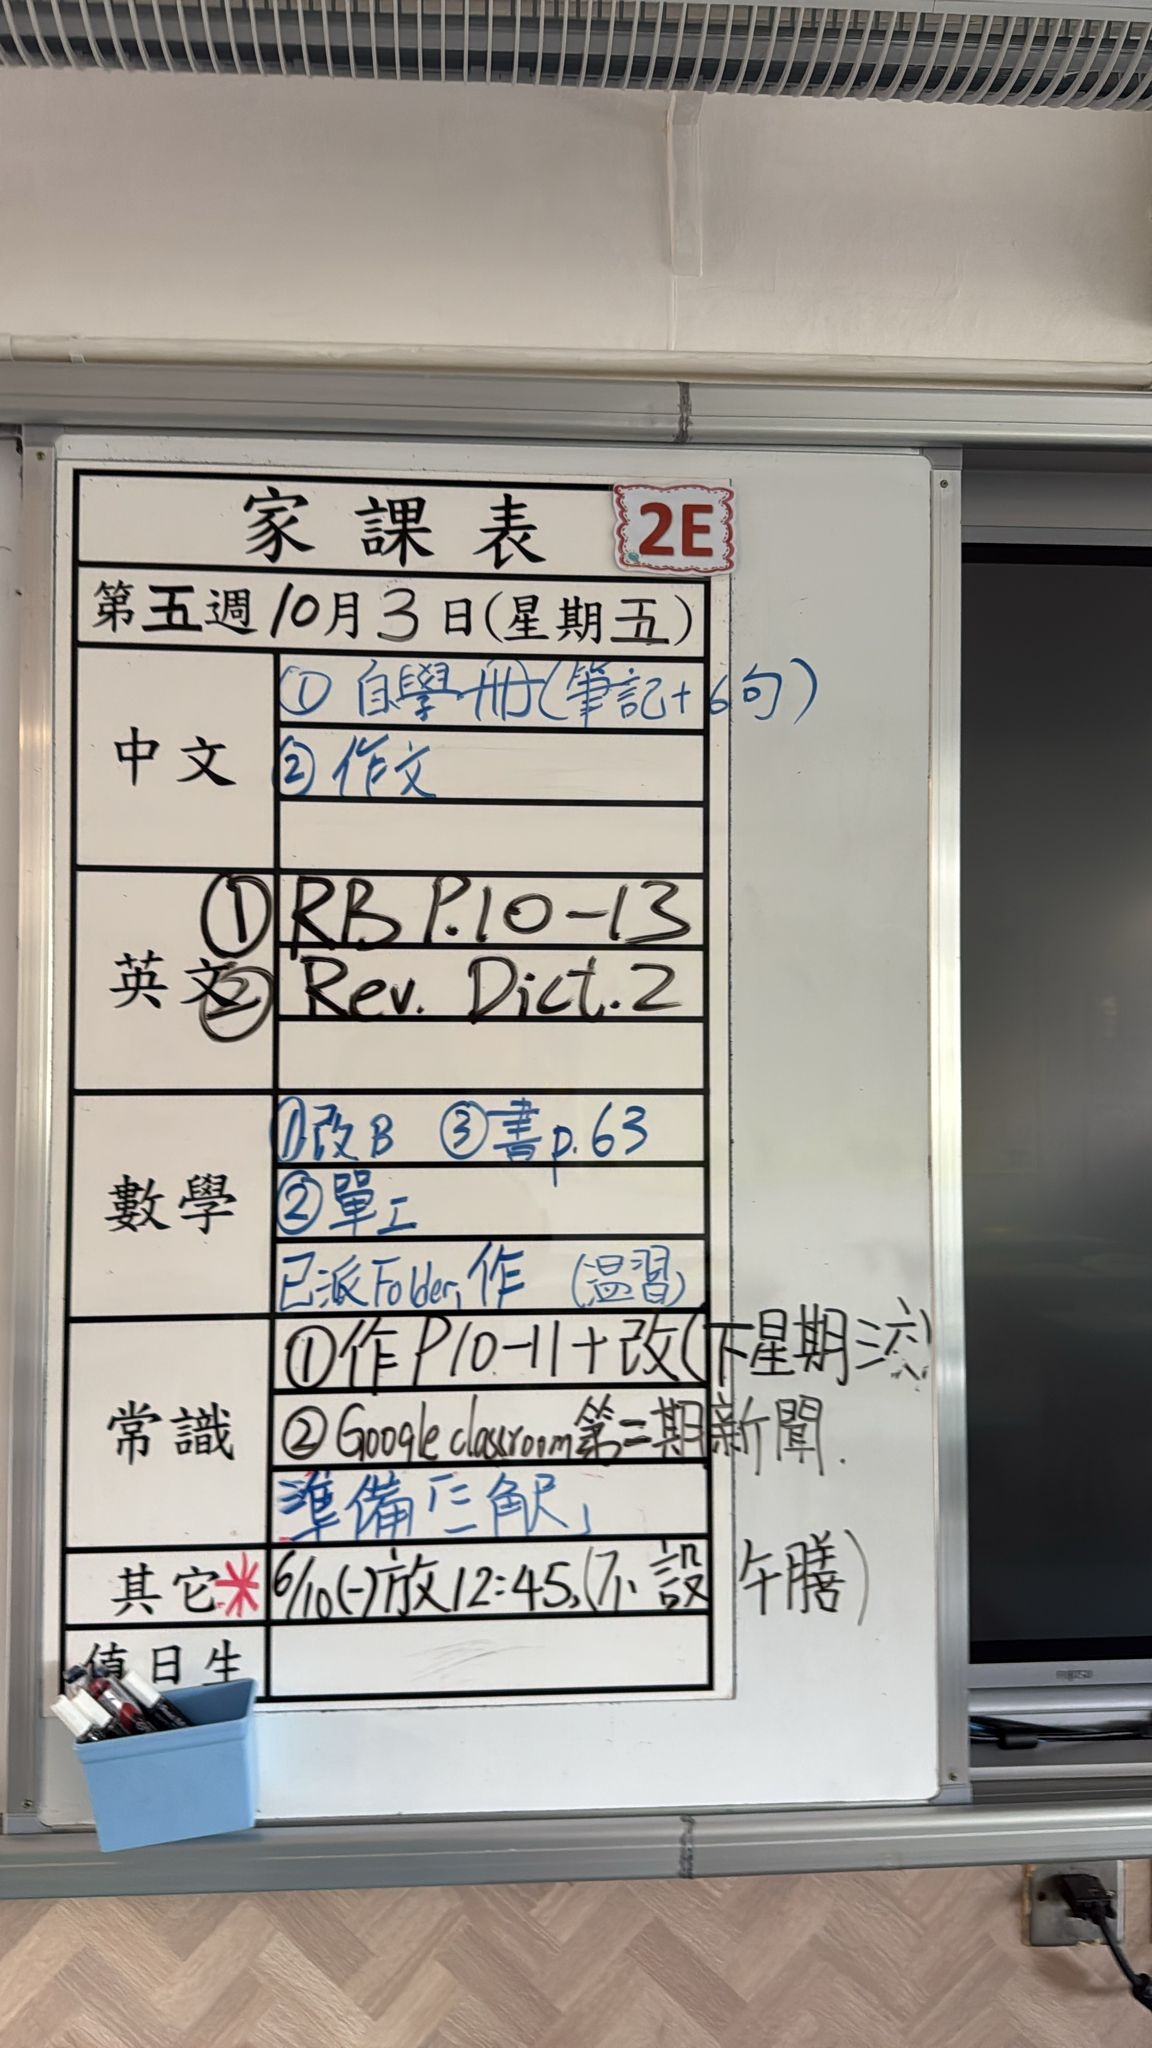 家課表 2E
第五週10月3日(星期五)
中文
① 自學冊(筆記+6句)
② 作文
英文
① RB P.10-13
② Rev. Dict.2
數學
①改B ③書p.63
②單工
已派Folder,作 (溫習)
常識
①作P10-11+改(下星期三
②Google classroom第二期新聞.
準備「三角尺」
其它*6/10(一)放12:45,(不設午膳)
值日生
FUJITSU